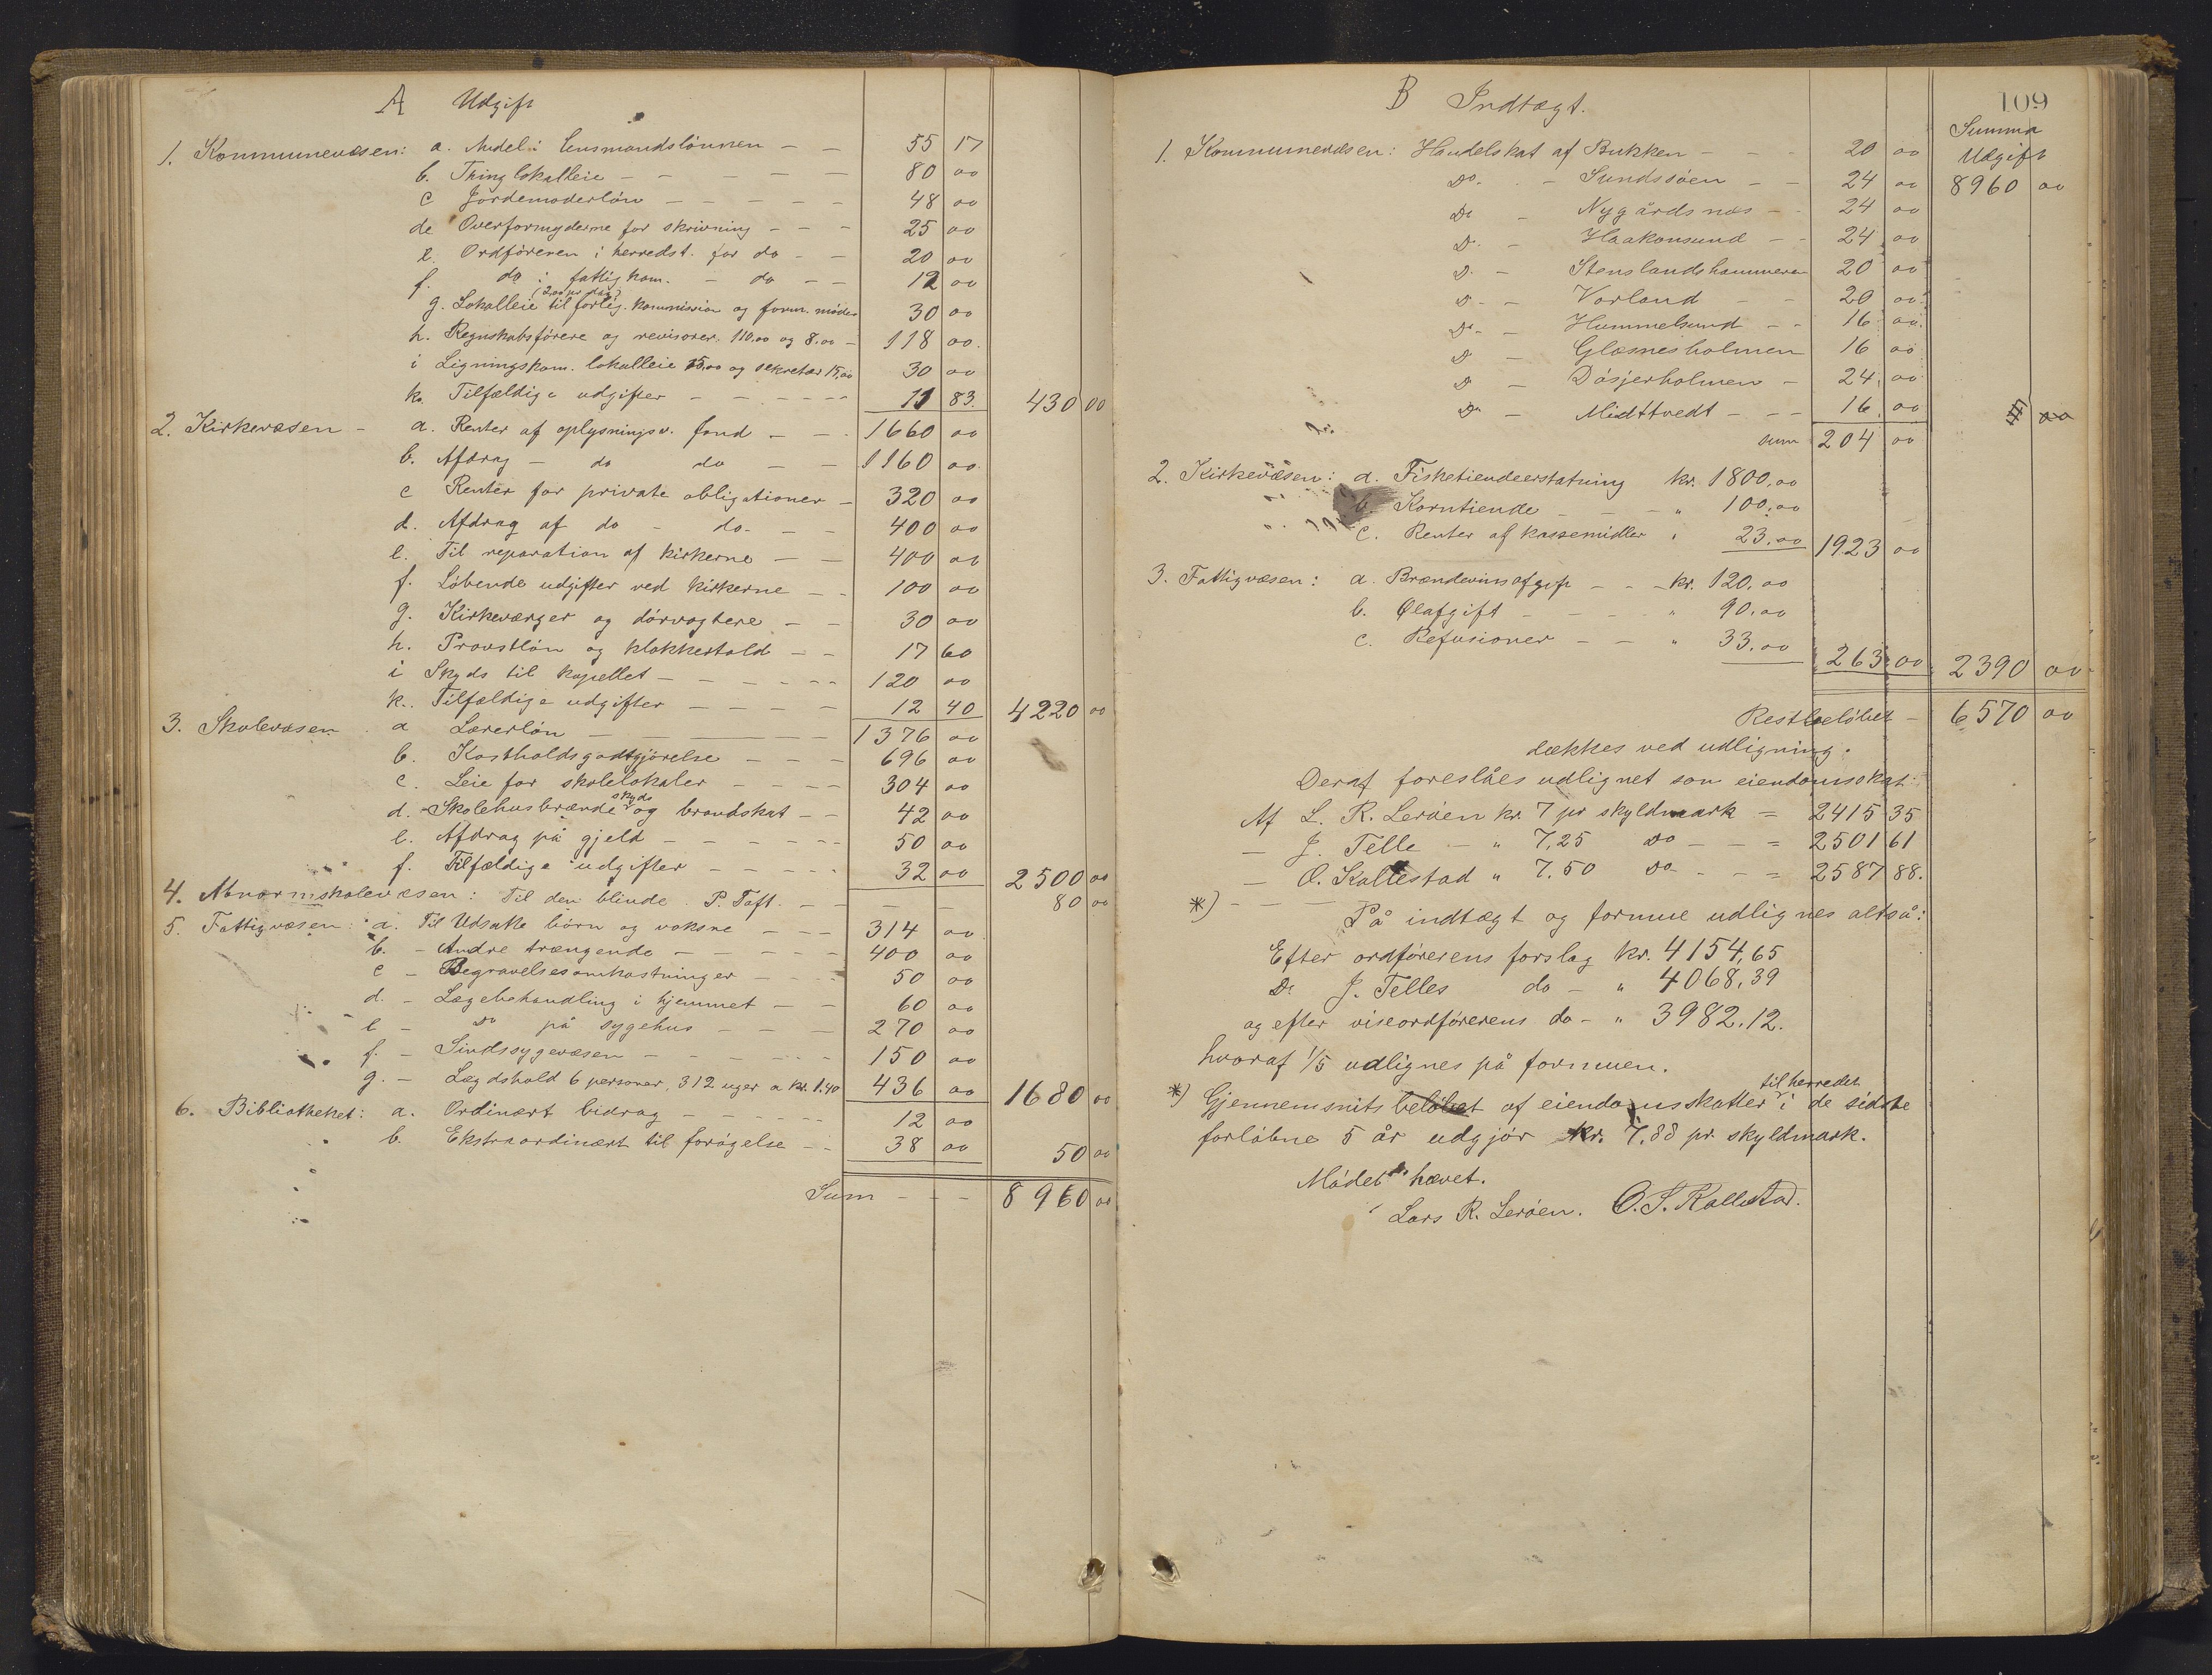 A Udgift
1. Kommunevæsen: a. Andel i lensmandslönnen - - 55 17
b. Thinglokalleie - - - - - 80 00
c Jordemoderlön - - - - - 48 00
de Overformyderne for skrivning - - - 25 00
e. Ordföreren i herredst. for do - - 20 00
f. do i fattigkom. - do - - 12 00
(2,00 pr dag)
g. Lokalleie til forlig. kommission og form. möder 30 00
h. Regnskabsförere og revisorer. 110.00 og 8.00 - 118 00.
i Ligningskom. lokalleie 15,00 og sekretær 15,00 30 00
k. Tilfældige udgifter - - - - - - 11 83. 430 00
2. Kirkevæsen - a. Renter af oplysningsv. fond - - - 1660 00
b. Afdrag - do do - - 1160 00.
c Renter for private obligationer - 320 00
d. Afdrag af do - do - - - 400 00
e. Til reparation af kirkerne - - 400 00
f. Löbende udgifter ved kirkerne - - 100 00
g. Kirkeværger og dörvogtere - - 30 00
h. Provstlön og klokkertold - - 17 60
i Skyds til kapellet - - - - - - 120 00
k.. Tilfældige udgifter - - - - 12 40 4220 00
3. Skolevæsen a Lærerlön - - - - - - 1376 00
b. Kostholdsgodtgjörelse - - - 696 00
c. Leie for skolelokaler - - - - 304 00
skyds
d. - Skolehusbrænde og brandskat - - 42 00
e. Afdrag på gjeld - - - - - - 50 00
f. Tilfældige udgifter - - - - - 32 00 2500 00
4. Abnormskolevæsen: Til den blinde P. Toft. - - - - 80 00
5. Fattigvæsen: a. Til Udsatte börn og voksne - - - 314 00
b. - Andre trængende - - - - - 400 00
c - Begravelsesomkostninger - - - 50 00
d. - Lægebehandling i hjemmet - - 60 00
e - Do på sygehus - - - 270 00
f. - Sindssygevæsen - - - - - - 150 00
g. - Lægdshold 6 personer, 312 uger a kr. 1.40 436 00 1680 00
6. Bibliotheket: a. Ordinært bidrag - - - - - 12 00
b. Ekstraordinært til forögelse - - 38 00 50 00
Sum - - - 8960 00
109
B Indtægt.
Summa
1. Kommunevæsen: Handelskat af Bukken - - - 20 00 Udgift
Do. - Sundsöen - - 24 00 8960 00
Do - Nygårdsnæs - - 24 00
D. - Haakonsund - - 24 00
D. - Stenslandshammeren 20 00
D - - Vorland - - 20 00.
Do - - Hummelsund - - 16 00.
D - Glæsnesholmen 16 00
D - Dösjerholmen - 24 00
Do - Midttvedt - - - 16 00
sum 204 00
2. Kirkevæsen: a. Fisketiendeerstatning kr. 1800,00
b. Korntiende - - - " 100,00
c. Renter af kassemidler " 23,00 1923 00
3. Fattigvæsen: a. Brændevinsafgift - - - kr. 120,00
b. Ølafgift - - - - " 90,00
c. Refusioner - - " 33.00 263 00 2390 00
Restbelöbet - 6570 00
dækkes ved udligning.
Deraf foreslåes udlignet som eiendomsskat:
Af L. R. Leröen kr. 7 pr skyldmark = 2415 35
- J. Telle - " 7,25 Do - - = 2501 61
- O. Kallestad " 7.50 Do - - - = 2587 88.
*) - - - På indtægt og formue udlignes altså:
Efter ordförerens forslag kr. 4154,65
Do J. Telles do - " 4068,39
og efter viseordförerens do - " 3982,12.
hvoraf 1/5 udlignes på formuen.
til herredet
*) Gjennemsnitsbelöbet af eiendomsskatter i de sidste
forlöbne 5 år udgjör kr. 7,88 pr. skyldmark.
Mödet hævet.
Lars R. Leröen. O. S. Kallestad.